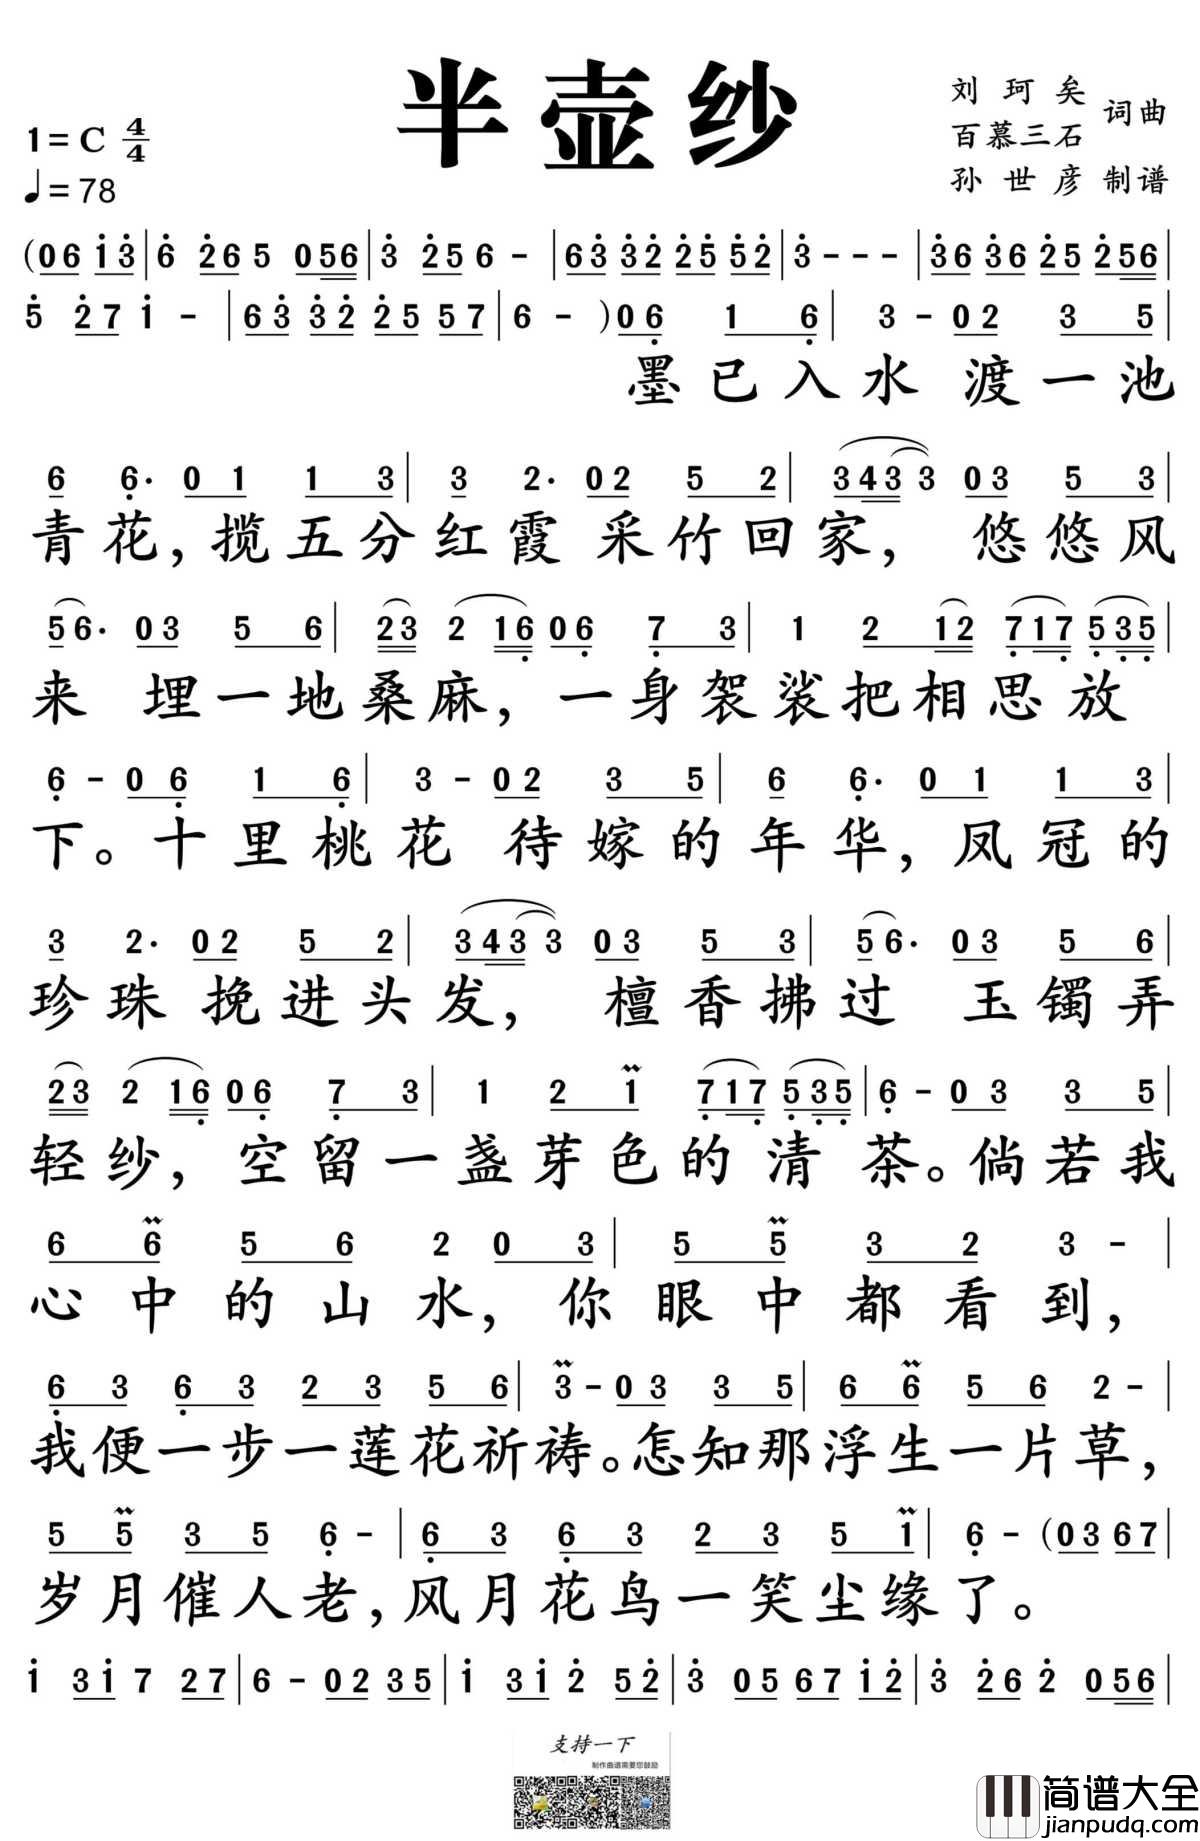 半壶纱
刘珂矣
百慕三石 词曲
孙世彦 制谱
1=C 4/4
♩=78
(06 i3|6 26 5 056|3 25 6 -|63 32 25 52|3---|36 36 25 256|
5 27 i -|63 32 25 57|6 - )06 1 6|3 - 02 3 5|
墨已入水 渡一池
6 6· 01 1 3|3 2· 02 5 2|343 3 03 5 3|
青花，揽五分红霞 采竹回家， 悠悠风
56· 03 5 6|23 2 16 06 7 3|1 2 12 717 535|
来 埋一地桑麻，一身袈裟把相思放
6 - 06 1 6|3 - 02 3 5|6 6· 01 1 3|
下。十里桃花 待嫁的年华，凤冠的
3 2· 02 5 2|343 3 03 5 3|56· 03 5 6|
珍珠 挽进头发， 檀香拂过 玉镯弄
23 2 16 06 7 3|1 2 1 717 535|6 - 03 3 5|
轻纱，空留一盏芽色的清茶。倘若我
6 6 5 6 2 03|5 5 3 2 3 -|
心中的山水，你眼中都看到，
6 3 6 3 2 3 5 6|3 - 03 3 5|6 6 5 6 2 -|
我便一步一莲花祈祷。怎知那浮生一片草，
5 5 3 5 6 -|6 3 6 3 2 3 5 1|6 - (03 67|
岁月催人老，风月花鸟一笑尘缘了。
i 3i 7 27|6 - 02 35|i 3i 2 52|3 05 67 i2|3 26 2 056|
支持一下
制作曲谱需要您鼓励
简谱大全
jianpudq.com